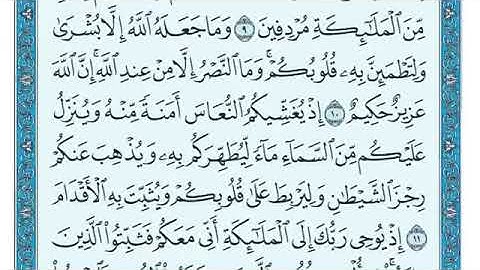 مِّنَ ٱلۡمَلَٰٓئِكَةِ مُرۡدِفِينَ ٩ وَمَا جَعَلَهُ ٱللَّهُ إِلَّا بُشۡرَىٰ
وَلِتَطۡمَئِنَّ بِهِۦ قُلُوبُكُمۡۚ وَمَا ٱلنَّصۡرُ إِلَّا مِنۡ عِندِ ٱللَّهِۚ إِنَّ ٱللَّهَ
عَزِيزٌ حَكِيمٌ ١٠ إِذۡ يُغَشِّيكُمُ ٱلنُّعَاسَ أَمَنَةٗ مِّنۡهُ وَيُنَزِّلُ
عَلَيۡكُم مِّنَ ٱلسَّمَآءِ مَآءٗ لِّيُطَهِّرَكُم بِهِۦ وَيُذۡهِبَ عَنكُمۡ
رِجۡزَ ٱلشَّيۡطَٰنِ وَلِيَرۡبِطَ عَلَىٰ قُلُوبِكُمۡ وَيُثَبِّتَ بِهِ ٱلۡأَقۡدَامَ
١١ إِذۡ يُوحِي رَبُّكَ إِلَى ٱلۡمَلَٰٓئِكَةِ أَنِّي مَعَكُمۡ فَثَبِّتُواْ ٱلَّذِينَ